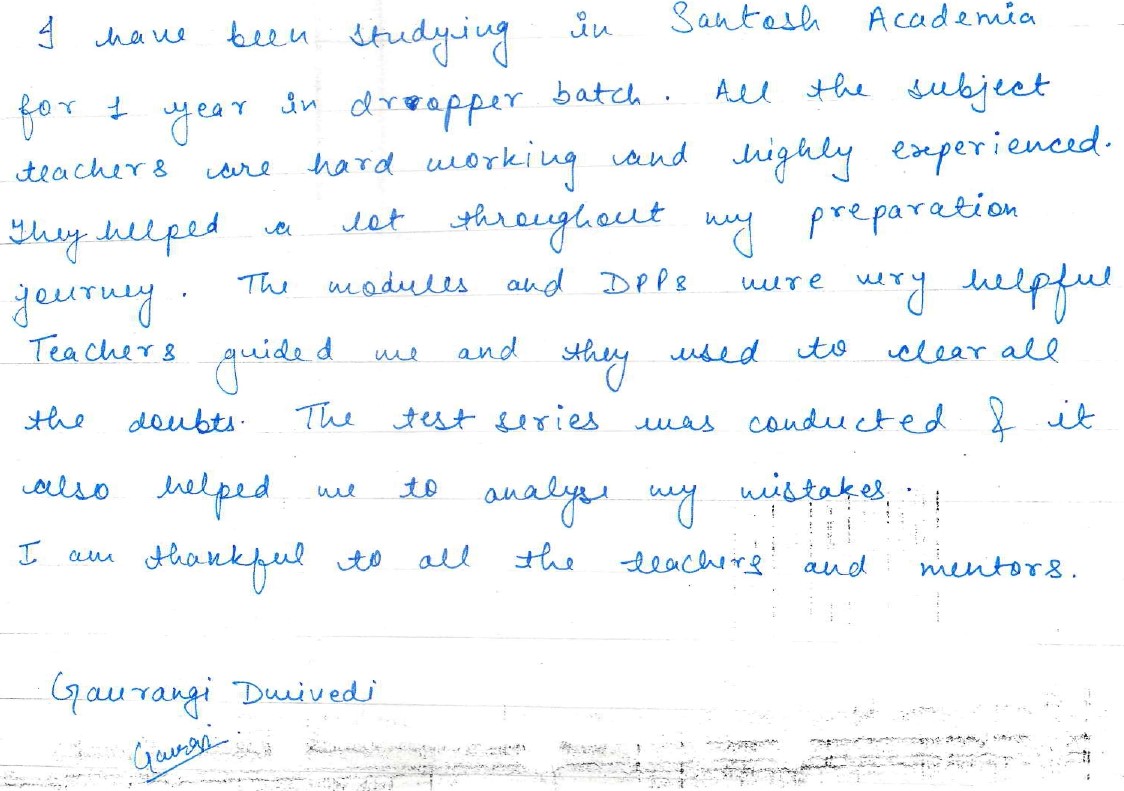 I have been studying in Santosh Academia
for 1 year in droapper batch. All the subject
teachers are hard working and highly experienced.
They helped a lot throughout my preparation
journey. The modules and DPPs were very helpful
Teachers guided me and they used to clear all
the doubts. The test series was conducted & it
also helped me to analyse my mistakes.
I am thankful to all the teachers and mentors.
Gaurangi Dwivedi